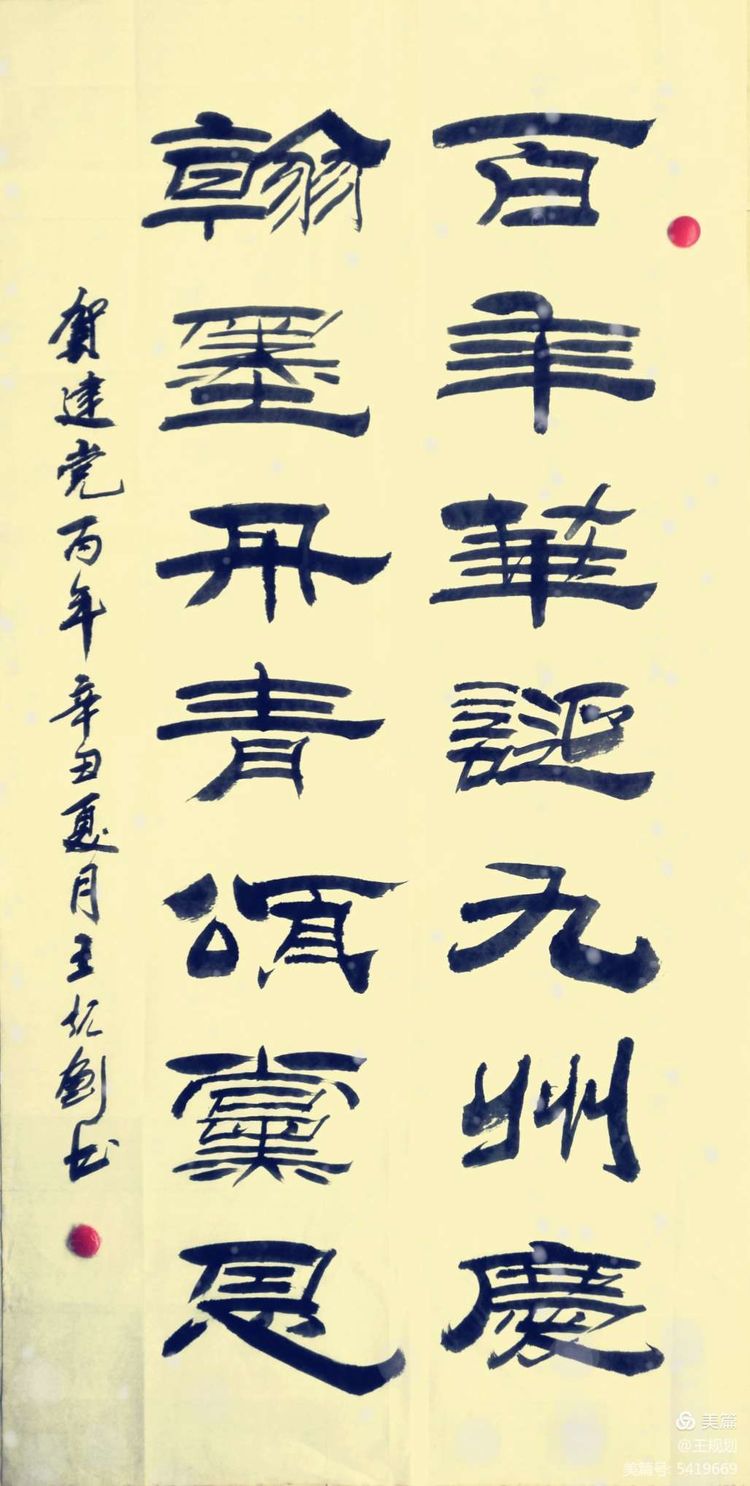 百年華誕九州慶
翰墨丹青頌黨恩
贺建党百年辛丑夏月王剑书
美篇
@王规划
美篇号: 5419669